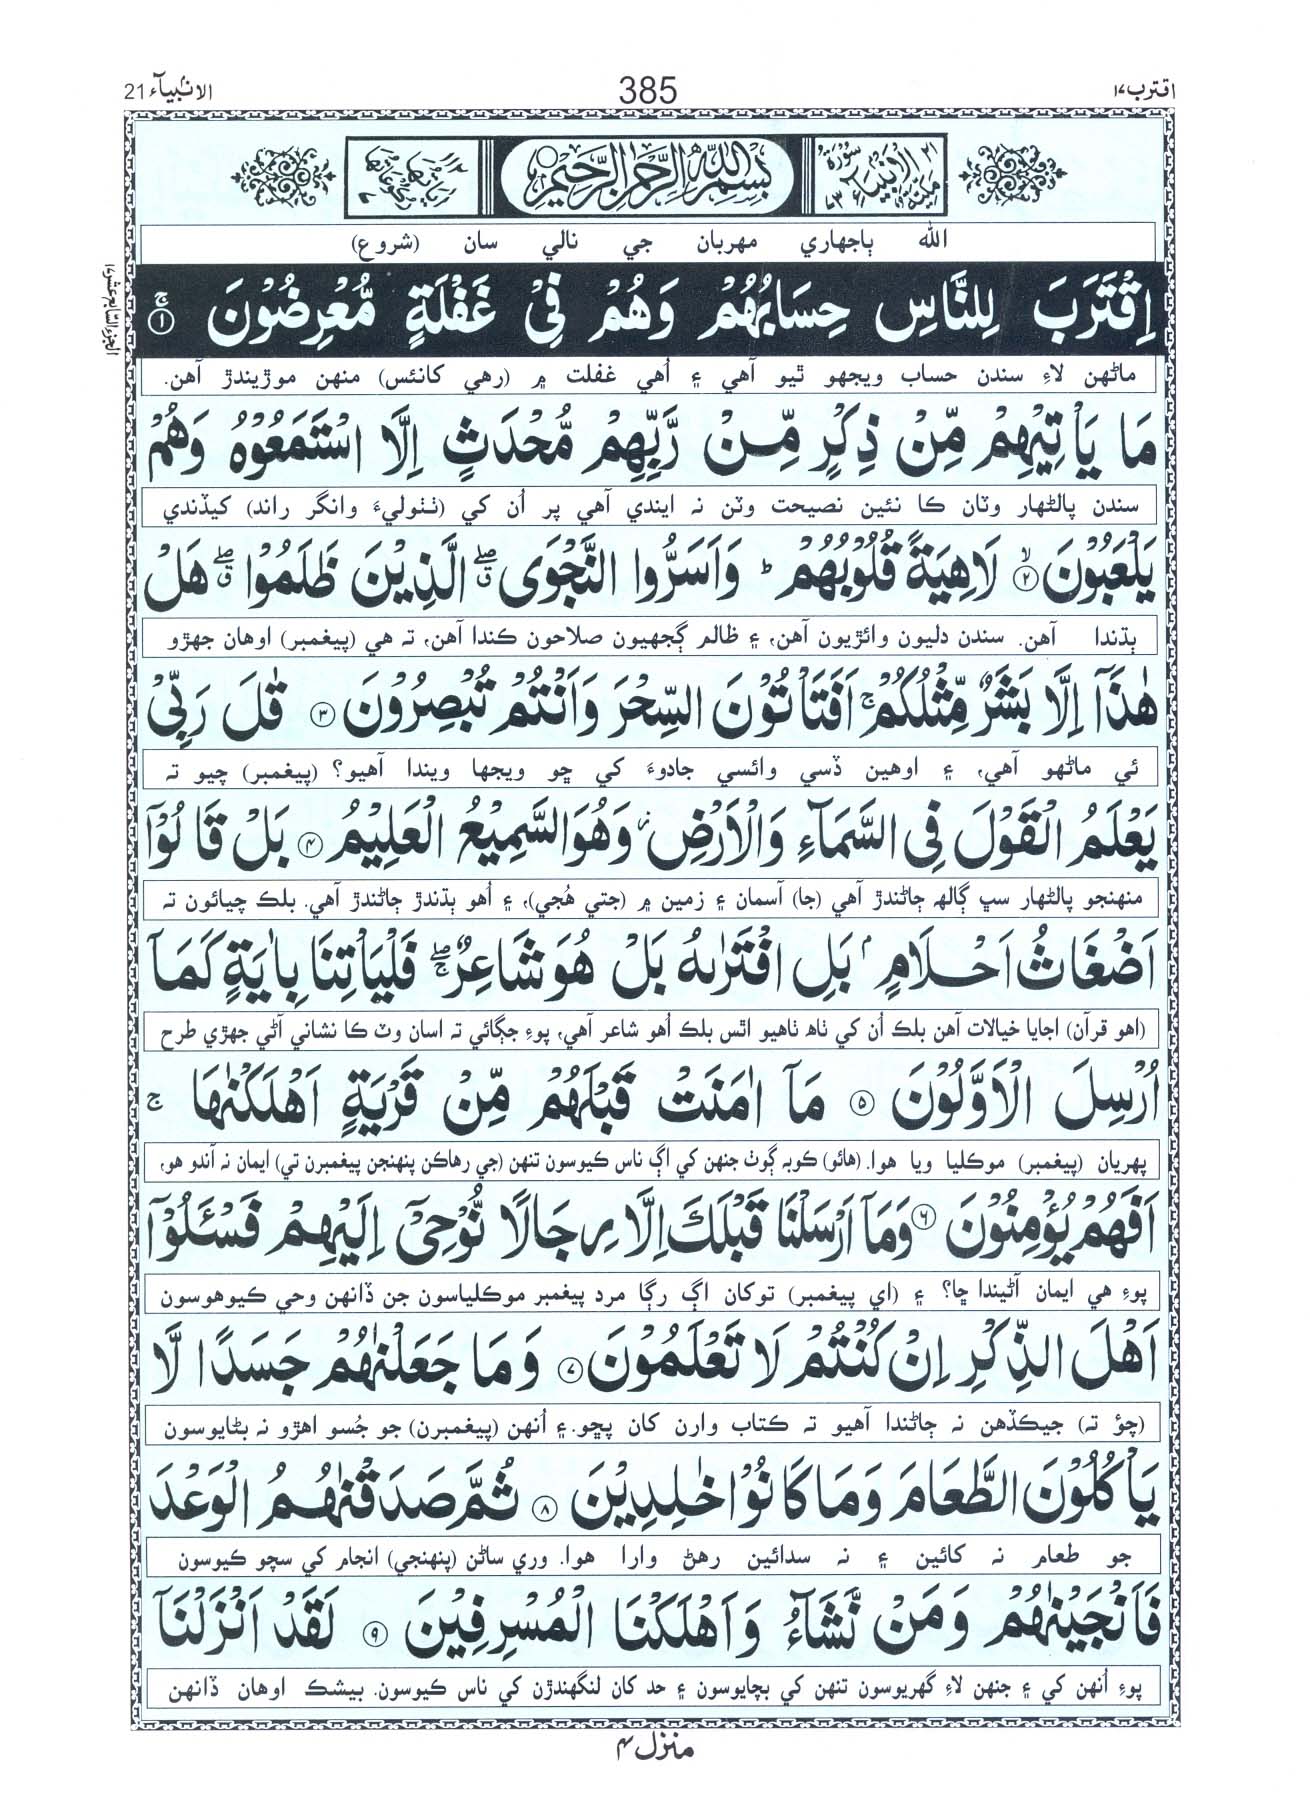 اقترب ۱۷
385
الانبیآء 21
۲۱ سُوْرَةُ الْاَنْۢبِيَآءِ مَكِّيَّةٌ ۷۳
بِسْمِ اللّٰهِ الرَّحْمٰنِ الرَّحِيْمِ
اٰيَاتُهَا ۱۱۲ رُكُوْعَاتُهَا ۷
الله ٻاجهاري مهربان جي نالي سان (شروع)
اِقْتَرَبَ لِلنَّاسِ حِسَابُهُمْ وَهُمْ فِيْ غَفْلَةٍ مُّعْرِضُوْنَ ۚ ۱
الجزء السابع عشر ۱۷
ماڻهن لاءِ سندن حساب ويجهو ٿيو آهي ۽ اُهي غفلت ۾ (رهي کانئس) منهن موڙيندڙ آهن.
مَا يَاْتِيْهِمْ مِّنْ ذِكْرٍ مِّنْ رَّبِّهِمْ مُّحْدَثٍ اِلَّا اسْتَمَعُوْهُ وَهُمْ
سندن پالڻهار وٽان ڪا نئين نصيحت وٽن نہ ايندي آهي پر اُن کي (ٺٺوليءَ وانگر راند) کيڏندي
يَلْعَبُوْنَ ۙ ۲ لَاهِيَةً قُلُوْبُهُمْ ؕ وَاَسَرُّوا النَّجْوَى ۖۗ الَّذِيْنَ ظَلَمُوْا ۖۗ هَلْ
ٻڌندا آهن. سندن دليون وائڙيون آهن، ۽ ظالم ڳجهيون صلاحون ڪندا آهن، تہ هي (پيغمبر) اوهان جهڙو
هٰذَآ اِلَّا بَشَرٌ مِّثْلُكُمْ ۚ اَفَتَاْتُوْنَ السِّحْرَ وَاَنْتُمْ تُبْصِرُوْنَ ۳ قٰلَ رَبِّيْ
ئي ماڻهو آهي، ۽ اوهين ڏسي وائسي جادوءَ کي ڇو ويجها ويندا آهيو؟ (پيغمبر) چيو تہ
يَعْلَمُ الْقَوْلَ فِي السَّمَآءِ وَالْاَرْضِ ز وَهُوَ السَّمِيْعُ الْعَلِيْمُ ۴ بَلْ قَالُوْٓا
منهنجو پالڻهار سڀ ڳالهہ ڄاڻندڙ آهي (جا) آسمان ۽ زمين ۾ (جتي هُجي)، ۽ اُهو ٻڌندڙ ڄاڻندڙ آهي. بلڪ چيائون تہ
اَضْغَاثُ اَحْلَامٍۭ بَلِ افْتَرٰىهُ بَلْ هُوَ شَاعِرٌ ۖۚ فَلْيَاْتِنَا بِاٰيَةٍ كَمَآ
(اهو قرآن) اجايا خيالات آهن بلڪ اُن کي ٺاهہ ٺاهيو اٿس بلڪ اُهو شاعر آهي، پوءِ جڳائي تہ اسان وٽ ڪا نشاني آڻي جهڙي طرح
اُرْسِلَ الْاَوَّلُوْنَ ۵ مَآ اٰمَنَتْ قَبْلَهُمْ مِّنْ قَرْيَةٍ اَهْلَكْنٰهَا ۚ
پهريان (پيغمبر) موڪليا ويا هوا. (هائو) ڪوبہ ڳوٺ جنهن کي اڳ ناس ڪيوسون تنهن (جي رهاڪن پنهنجن پيغمبرن تي) ايمان نہ آندو هو،
اَفَهُمْ يُؤْمِنُوْنَ ۶ وَمَآ اَرْسَلْنَا قَبْلَكَ اِلَّا رِجَالًا نُّوْحِيْٓ اِلَيْهِمْ فَسْـَٔلُوْٓا
پوءِ هي ايمان آڻيندا ڇا؟ ۽ (اي پيغمبر) توکان اڳ رڳا مرد پيغمبر موڪلياسون جن ڏانهن وحي ڪيوهوسون
اَهْلَ الذِّكْرِ اِنْ كُنْتُمْ لَا تَعْلَمُوْنَ ۷ وَمَا جَعَلْنٰهُمْ جَسَدًا لَّا
(چؤ تہ) جيڪڏهن نہ ڄاڻندا آهيو تہ ڪتاب وارن کان پڇو. ۽ اُنهن (پيغمبرن) جو جُسو اهڙو نہ بڻايوسون
يَاْكُلُوْنَ الطَّعَامَ وَمَا كَانُوْا خٰلِدِيْنَ ۸ ثُمَّ صَدَقْنٰهُمُ الْوَعْدَ
جو طعام نہ کائين ۽ نہ سدائين رهڻ وارا هوا. وري ساڻن (پنهنجي) انجام کي سچو ڪيوسون
فَاَنْجَيْنٰهُمْ وَمَنْ نَّشَآءُ وَاَهْلَكْنَا الْمُسْرِفِيْنَ ۹ لَقَدْ اَنْزَلْنَآ
پوءِ اُنهن کي ۽ جنهن لاءِ گهريوسون تنهن کي بچايوسون ۽ حد کان لنگهندڙن کي ناس ڪيوسون. بيشڪ اوهان ڏانهن
منزل ۴